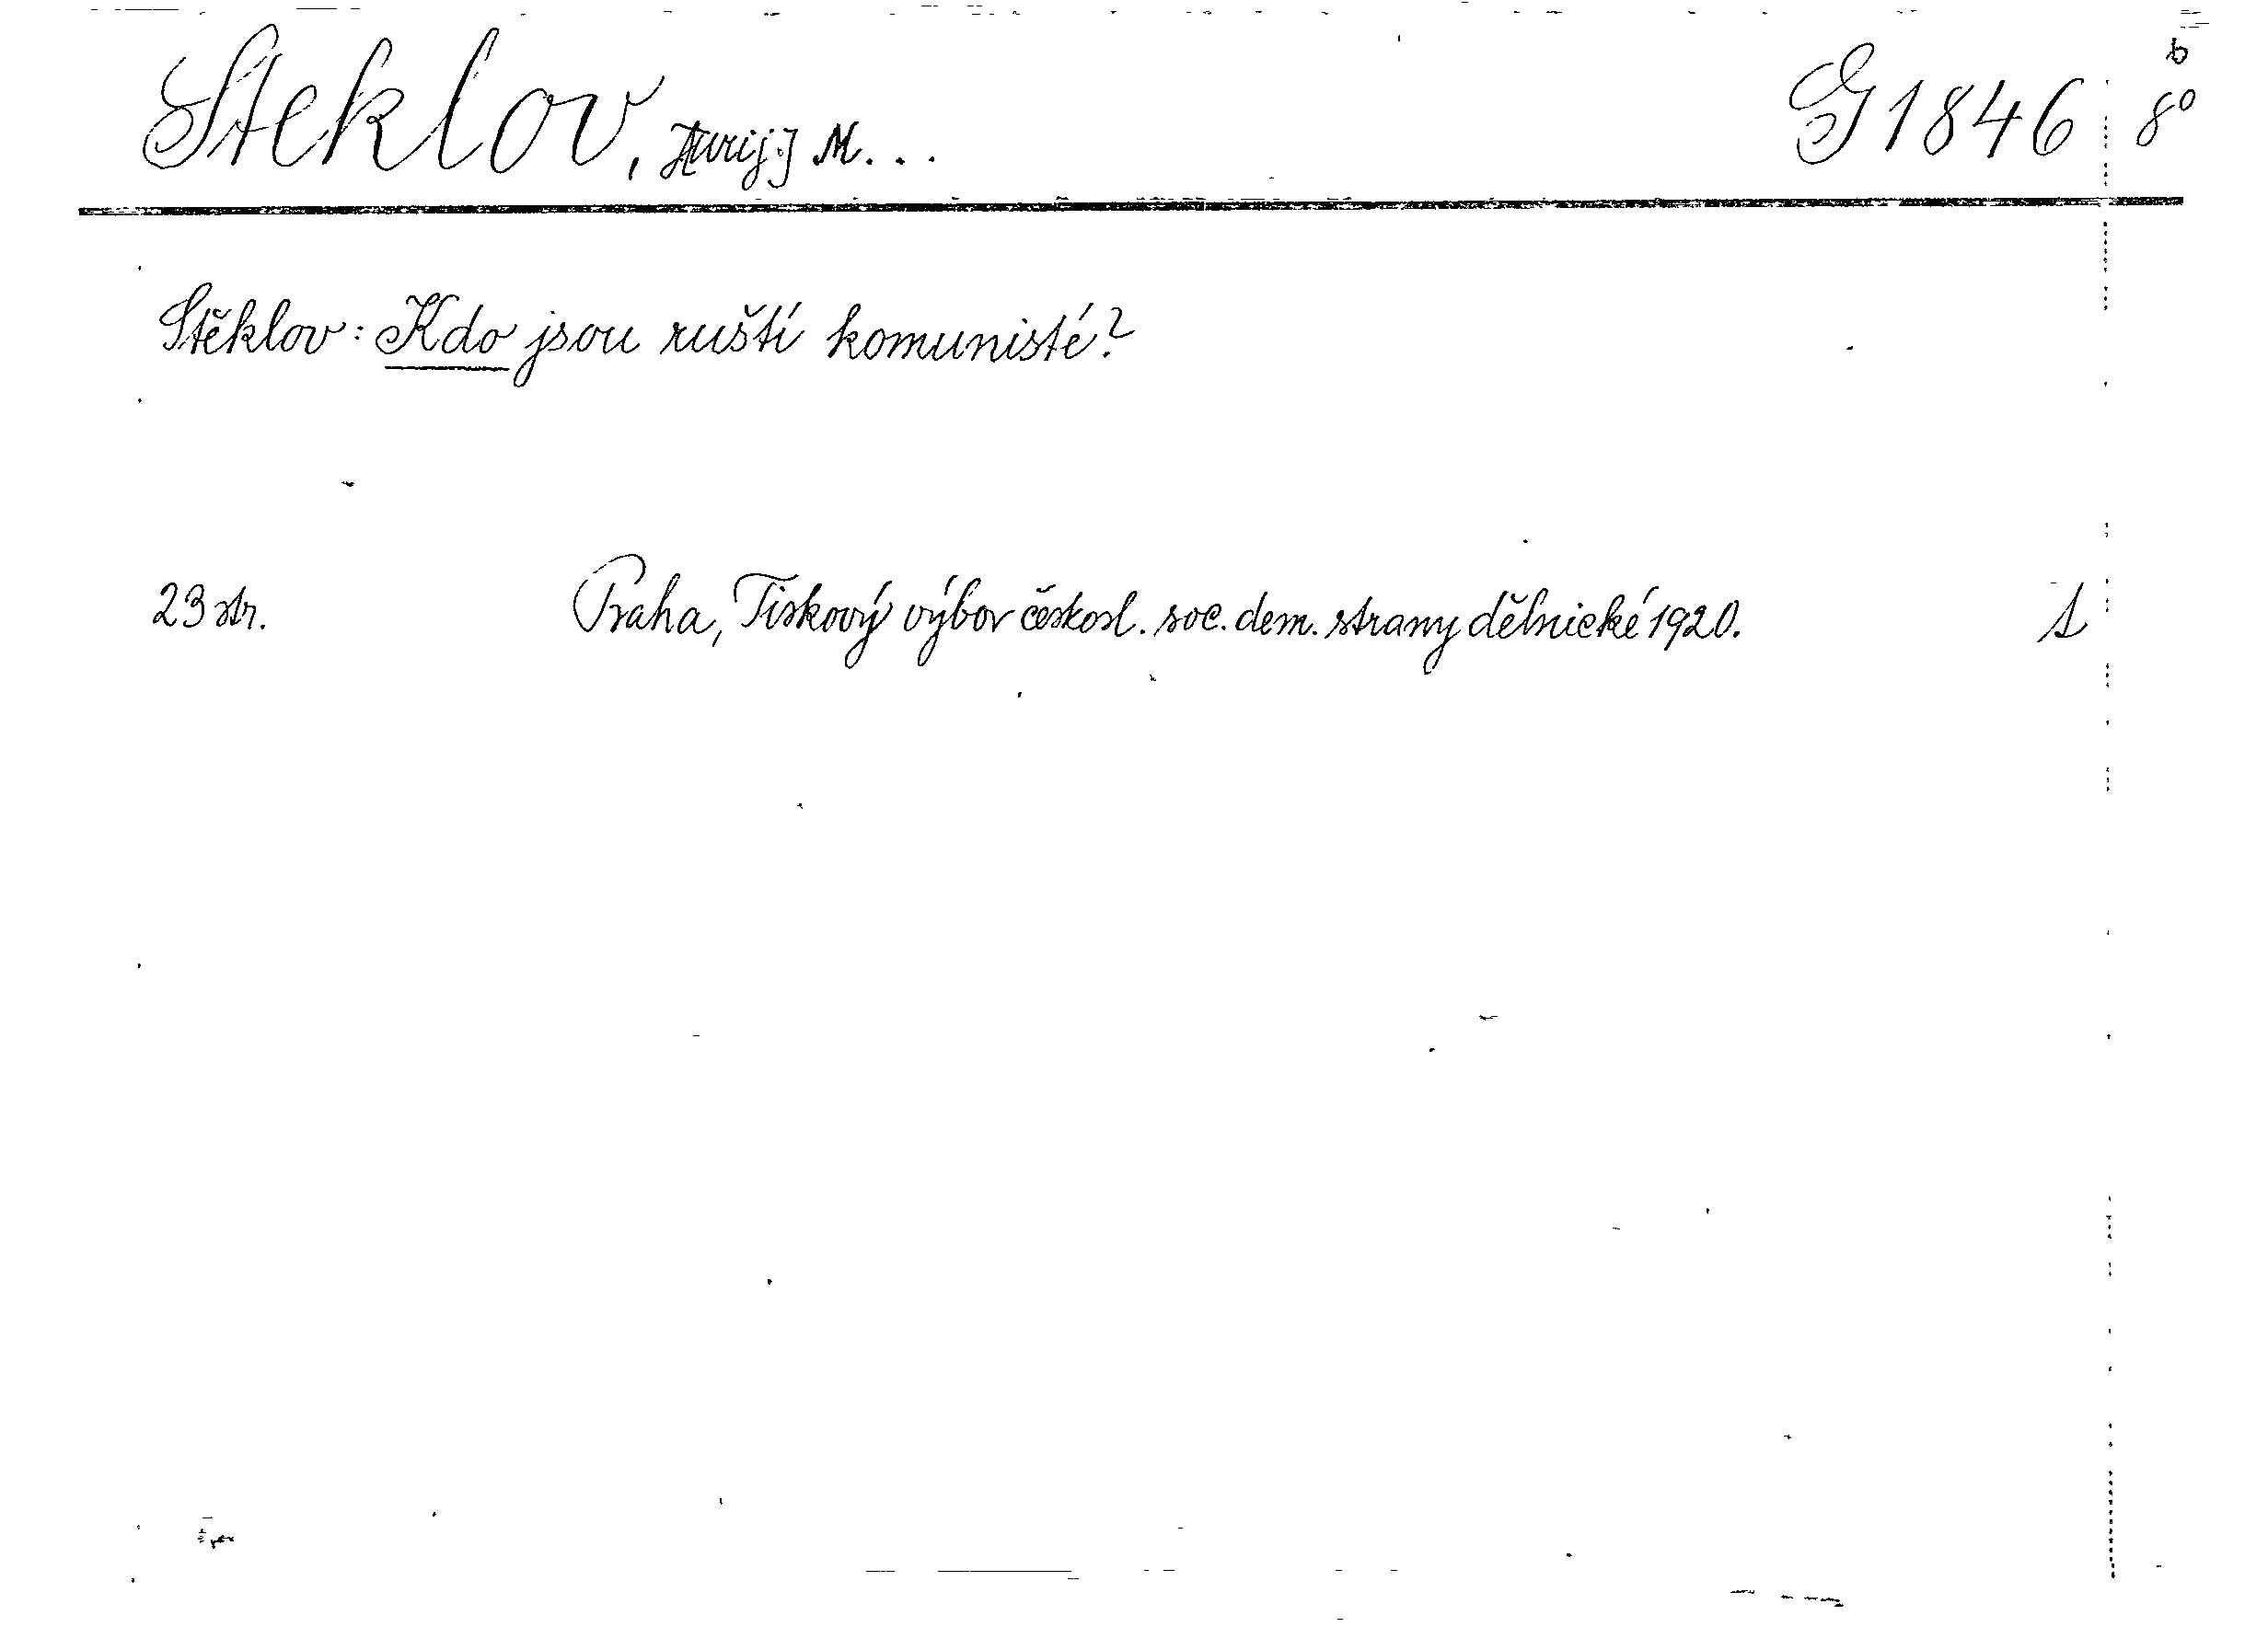 Steklov, [Jurij] M... G 1846 b 8°
Stěklov: Kdo jsou ruští komunisté?
23 str. Praha, Tiskový výbor českosl. soc. dem. strany dělnické 1920.